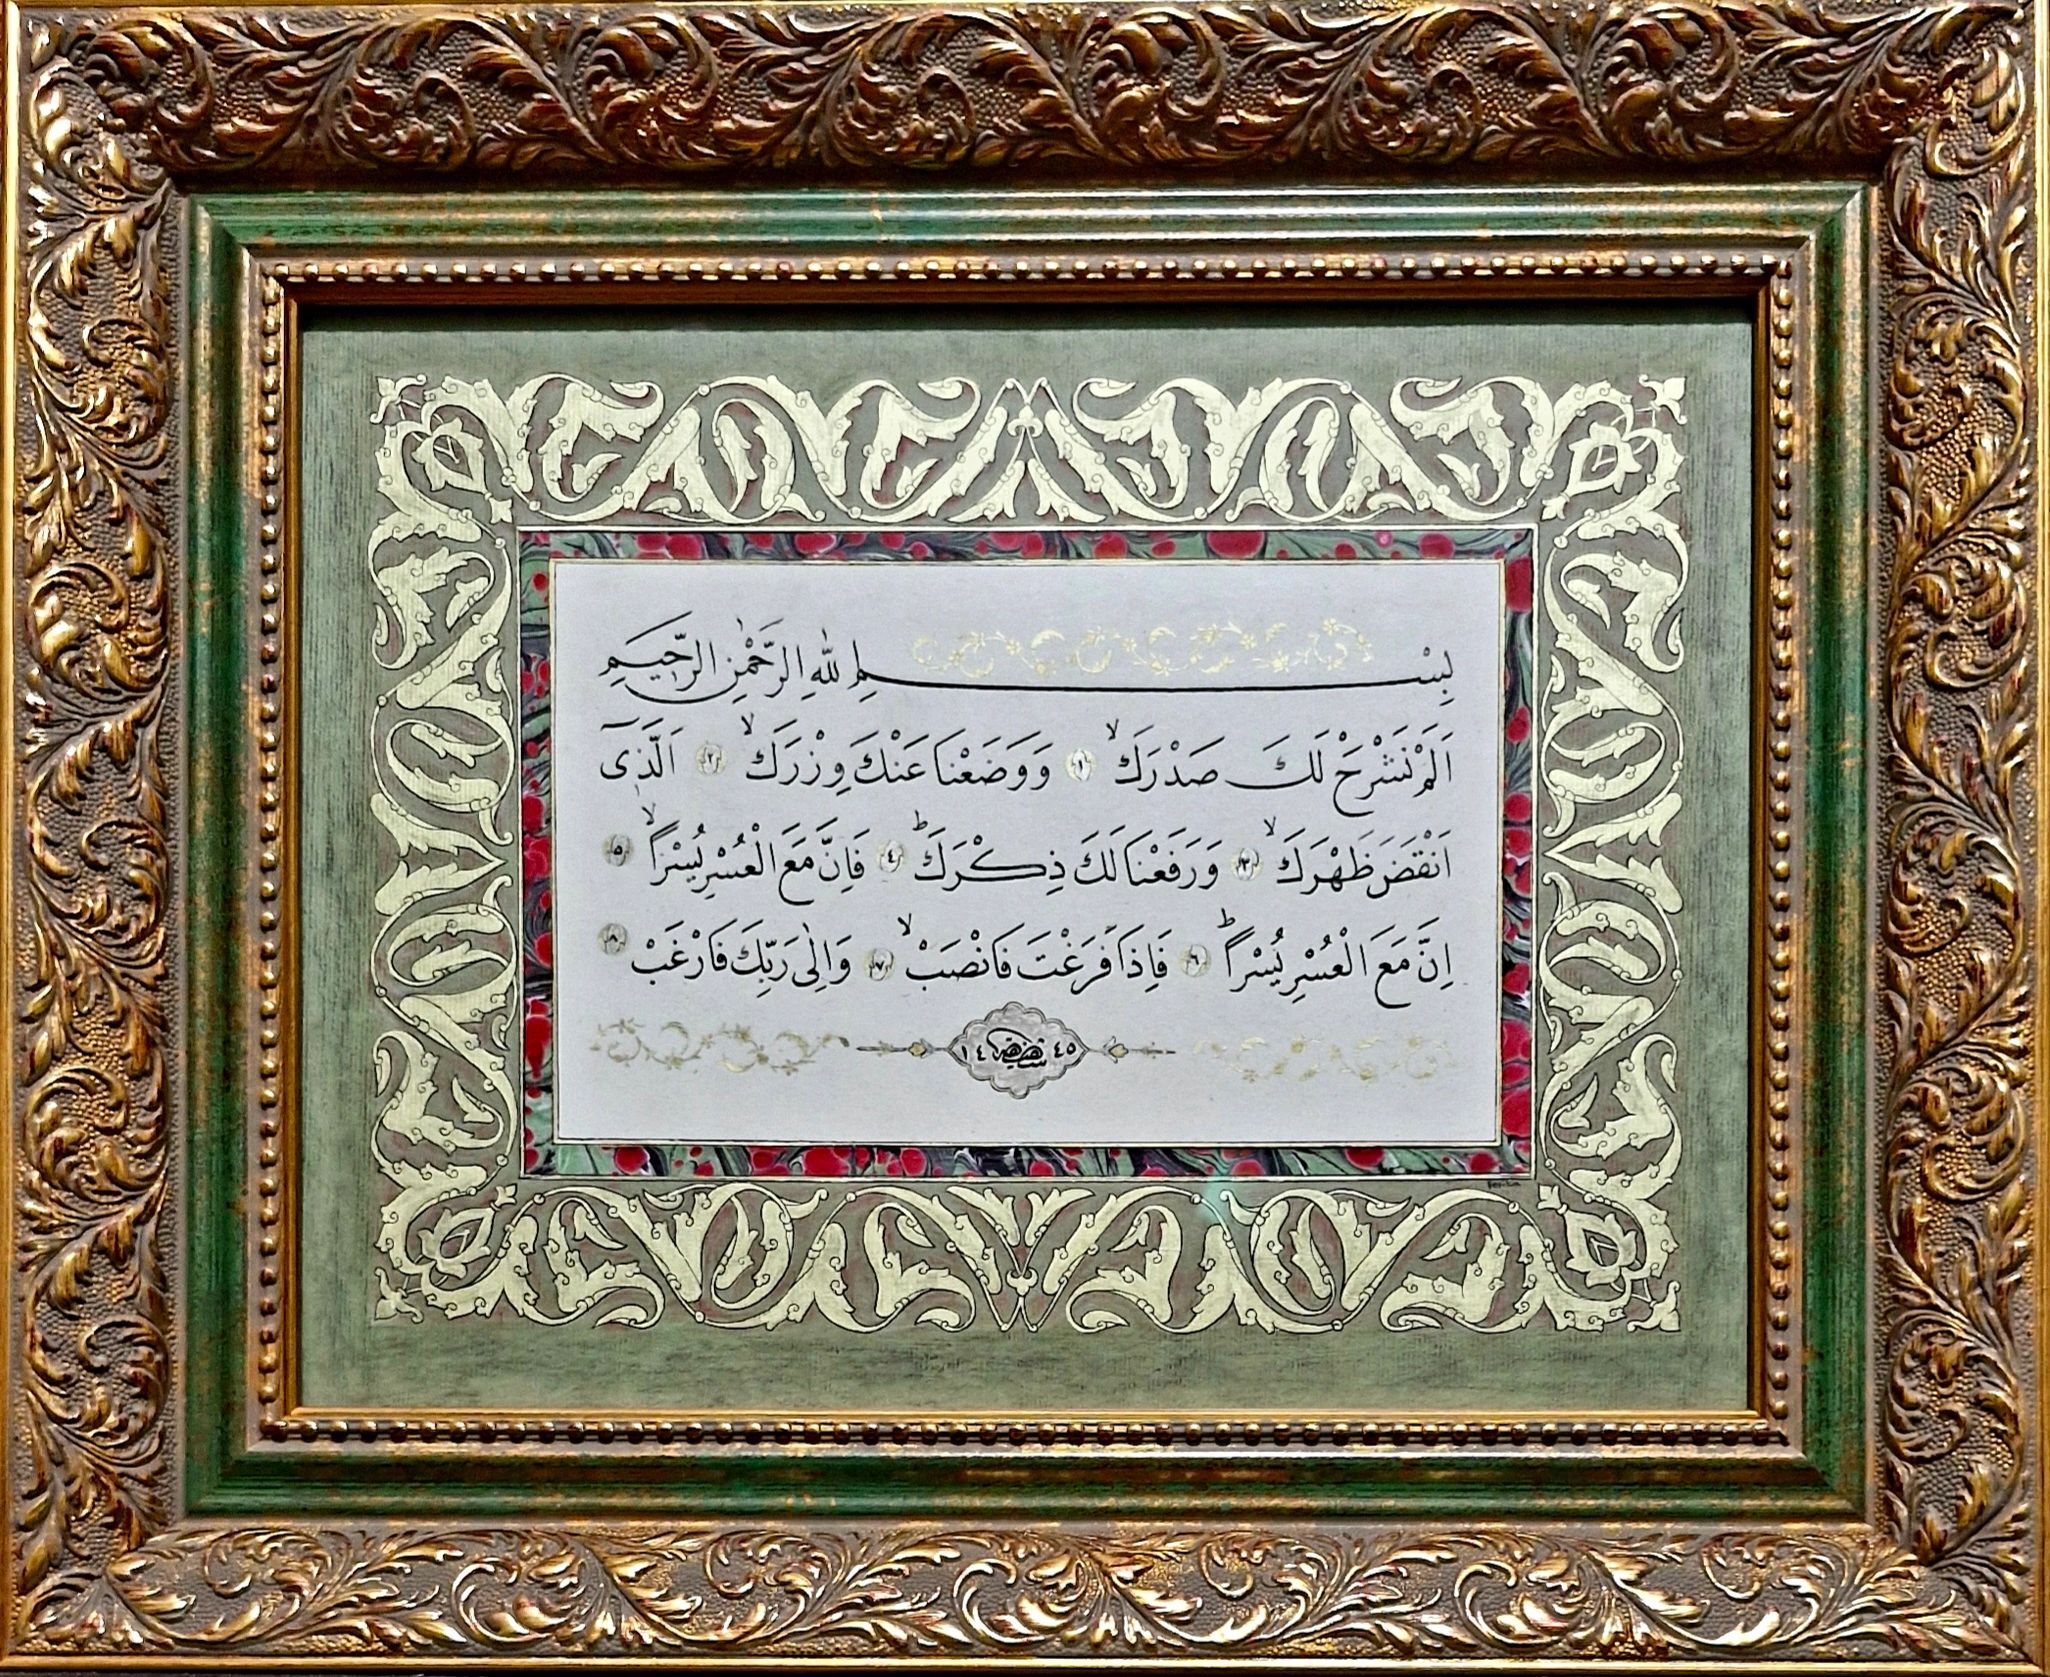 بِسْمِ اللهِ الرَّحْمٰنِ الرَّحِيمِ
اَلَمْ نَشْرَحْ لَكَ صَدْرَكَۙ ١ وَوَضَعْنَا عَنْكَ وِزْرَكَۙ ٢ اَلَّذ۪ٓى
اَنْقَضَ ظَهْرَكَۙ ٣ وَرَفَعْنَا لَكَ ذِكْرَكَۜ ٤ فَاِنَّ مَعَ الْعُسْرِ يُسْرًاۙ ٥
اِنَّ مَعَ الْعُسْرِ يُسْرًاۜ ٦ فَاِذَا فَرَغْتَ فَانْصَبْۙ ٧ وَاِلٰى رَبِّكَ فَارْغَبْ ٨
١٤٤٥